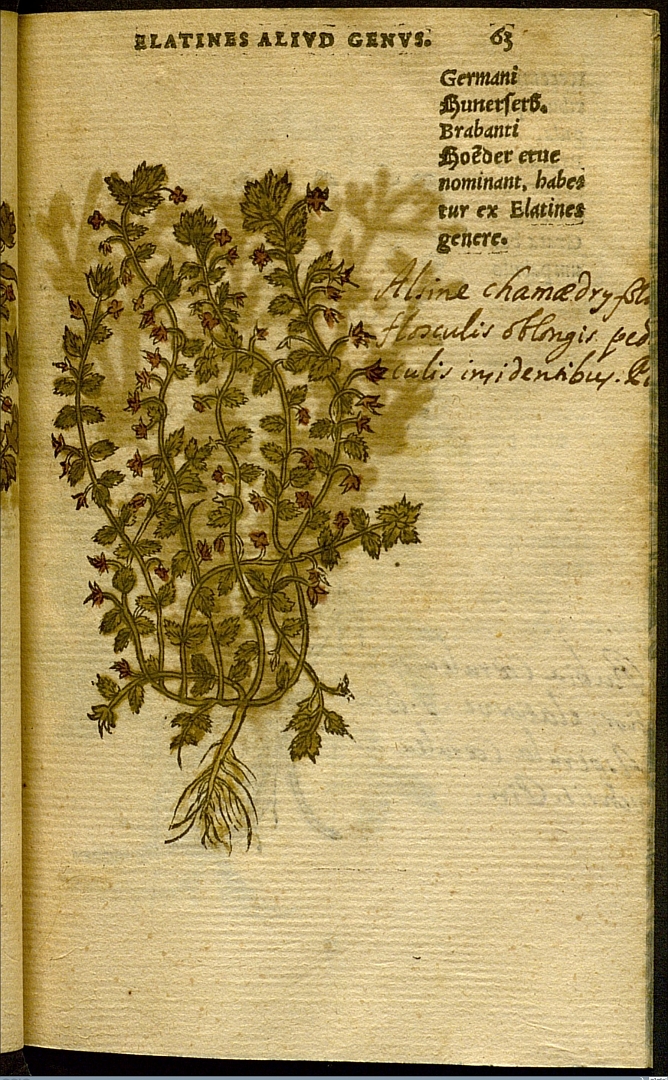 ELATINES ALIVD GENVS. 63
Germani
Hunerserb.
Brabanti
Hoeder erue
nominant, habes
tur ex Elatines
genere.
Alsine chamædryfoli
flosculis oblongis ped
culis insidentibus.